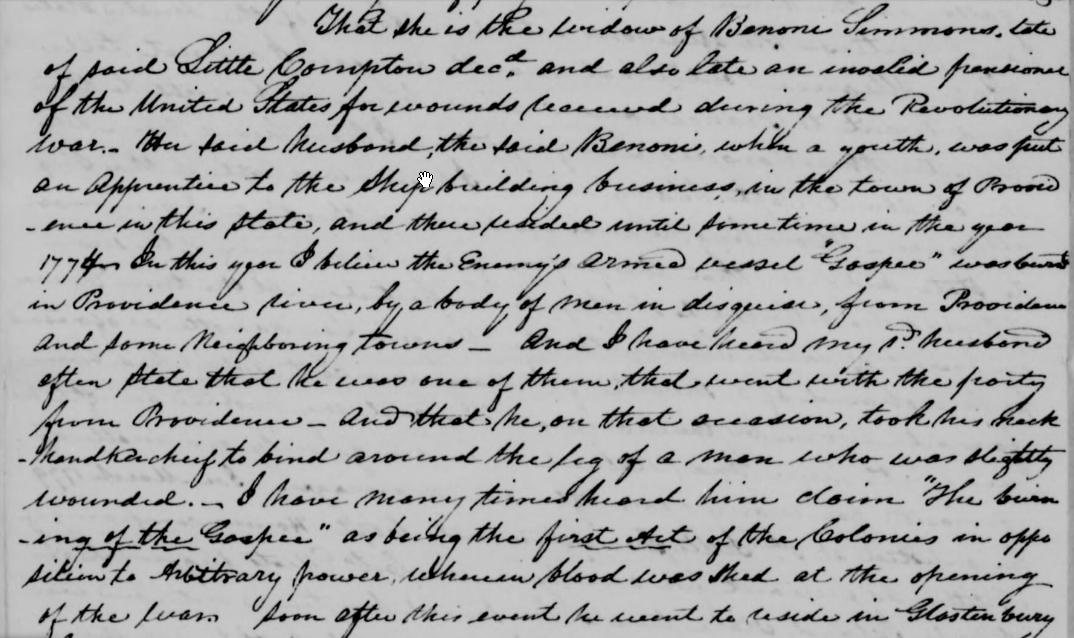 That she is the widow of Benoni Simmons, late
of said Little Compton decd. and also late an invalid pensioner
of the United States for wounds received during the Revolutionary
war.- Her said husband, the said Benoni, when a youth, was put
an Apprentice to the Ship building business, in the town of Provid
-ence in this State, and there resided until sometime in the year
1774 In this year I believe the Enemy's armed vessel "Gaspee" was burnt
in Providence river, by a body of men in disguise, from Providence
and some Neighboring towns - And I have heard my sd. husband
often state that he was one of them, that went with the party
from Providence - And that he, on that occasion, took his neck
-handkercheif to bind around the leg of a man who was slightly
wounded. - I have many times heard him claim "The burn
-ing of the Gaspee" as being the first Act of the Colonies in oppo
sition to Arbitrary power, wherein blood was shed at the opening
of the war. Soon after this event he went to reside in Glastenbury